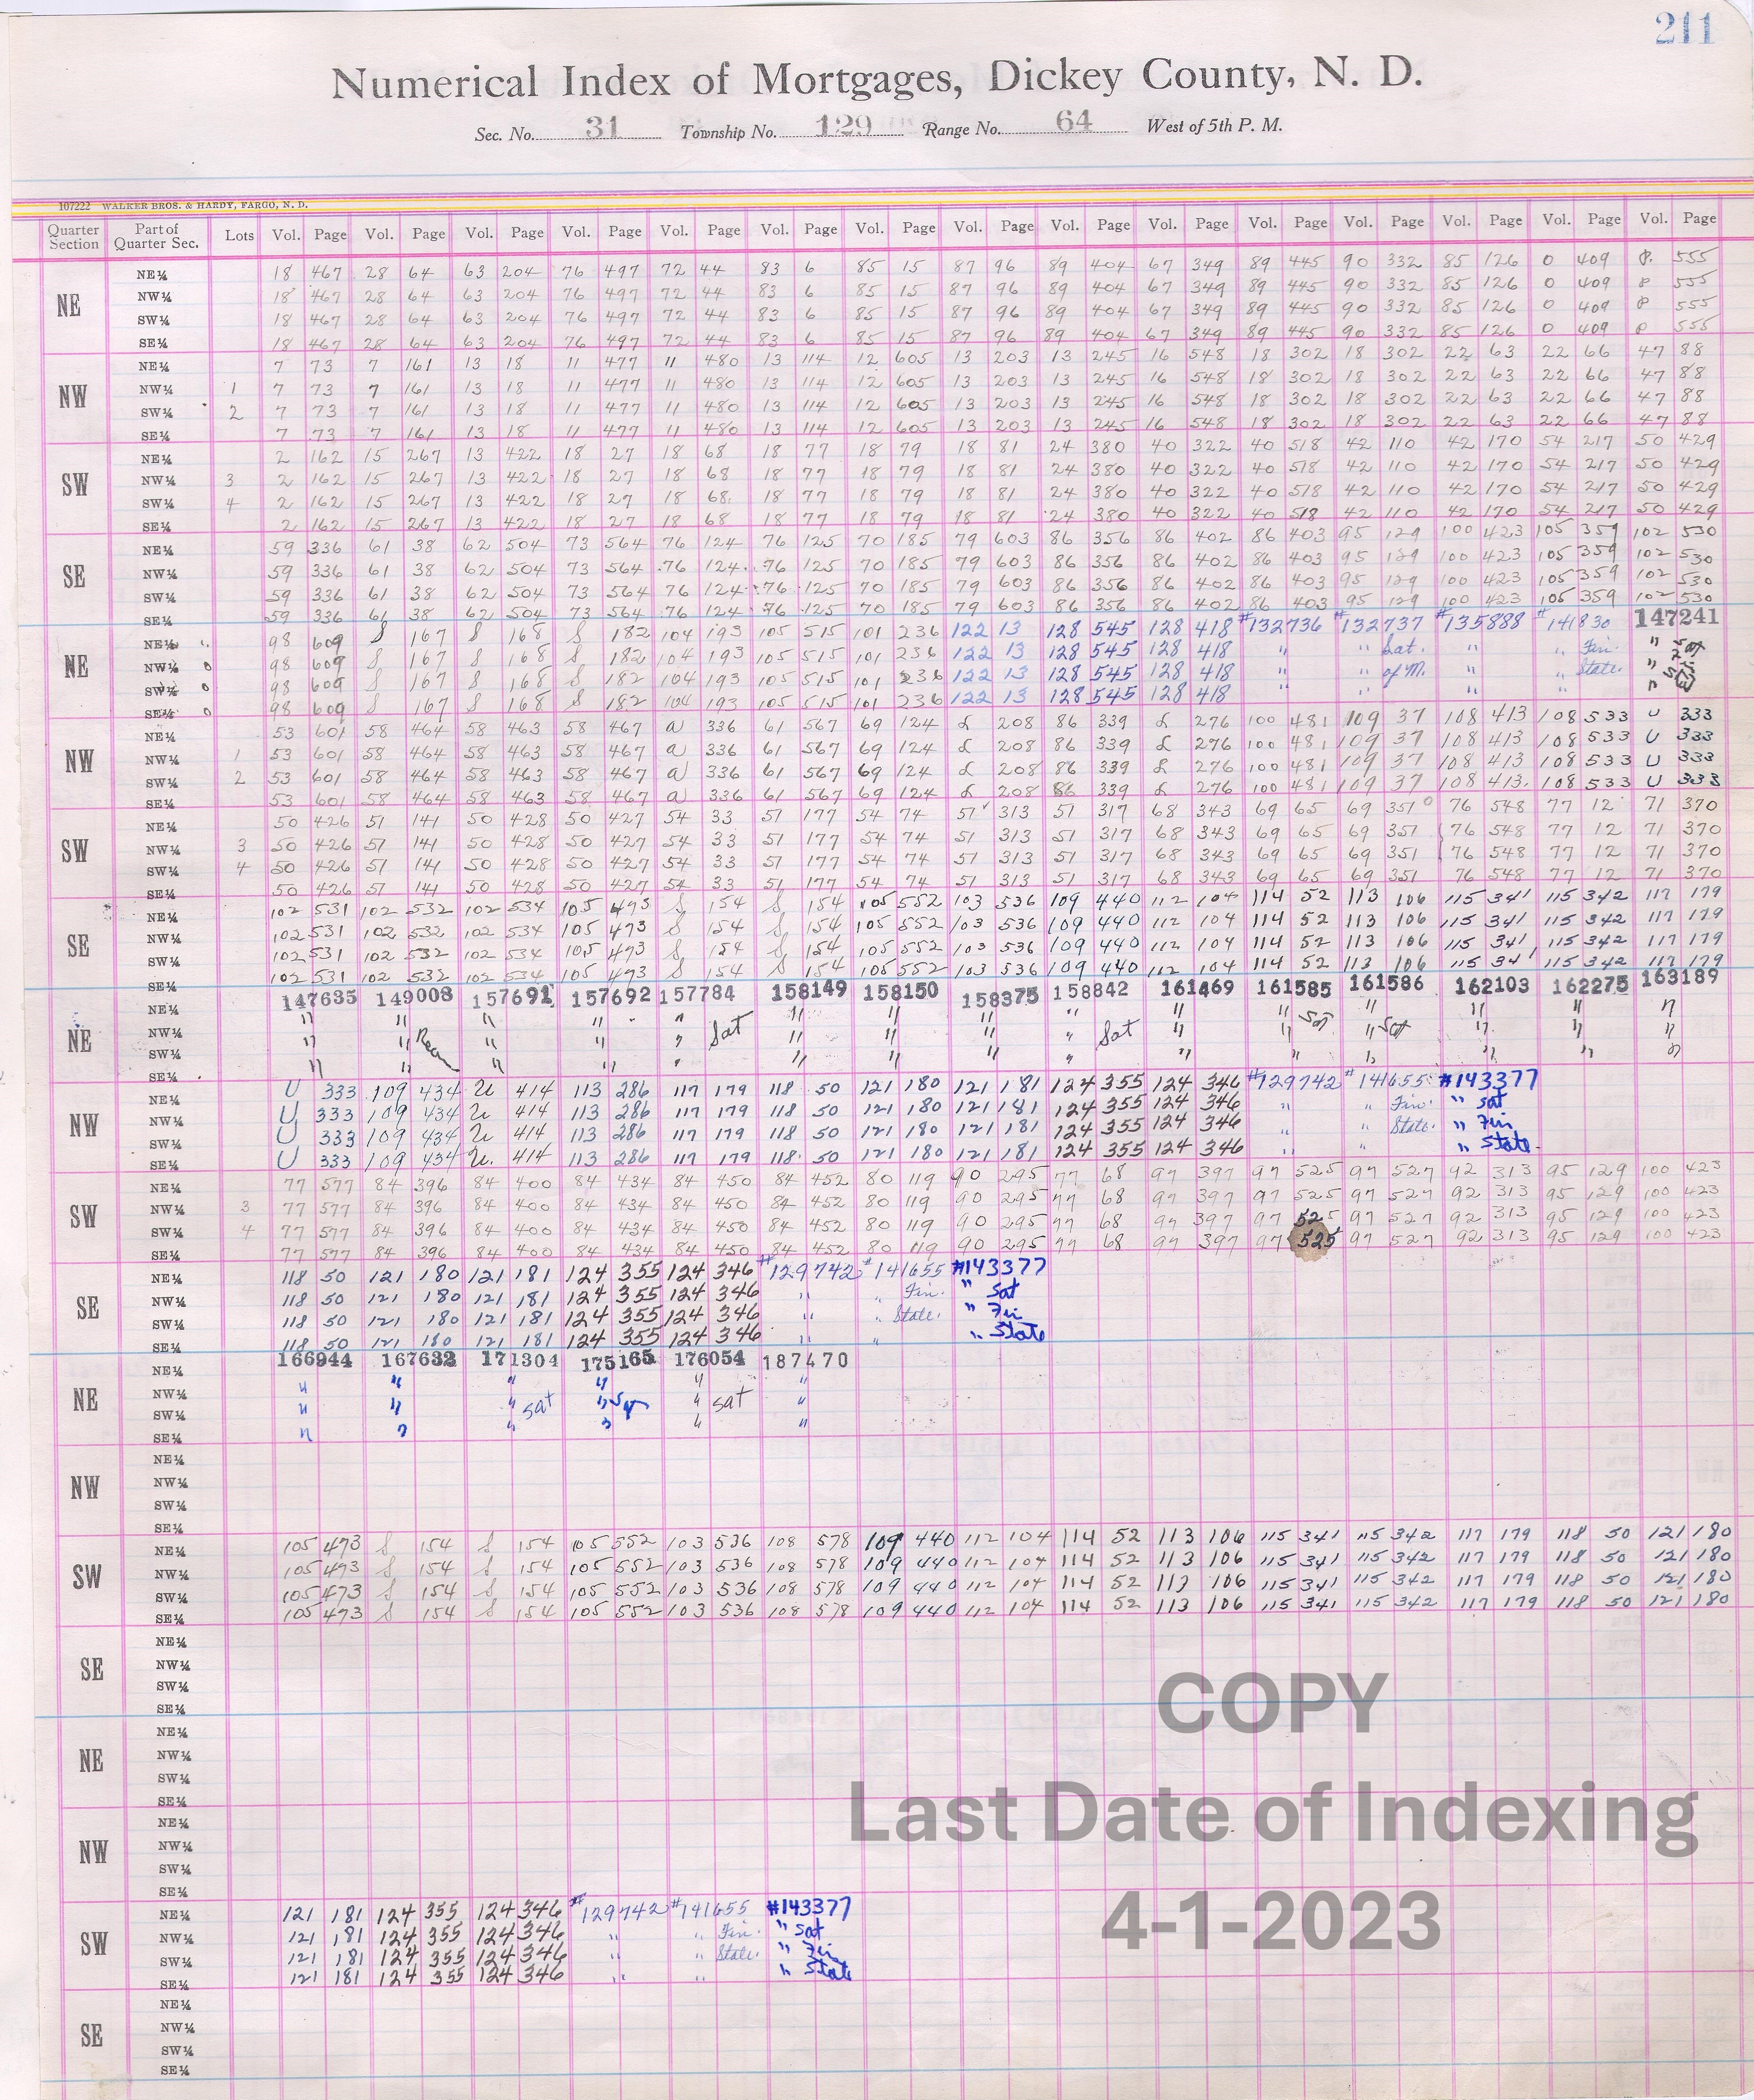 211
Numerical Index of Mortgages, Dickey County, N. D.
Sec. No. 31 Township No. 129 Range No. 64 West of 5th P. M.
107222 WALKER BROS. & HARDY, FARGO, N. D.
Quarter Section Part of Quarter Sec. Lots Vol. Page Vol. Page Vol. Page Vol. Page Vol. Page Vol. Page Vol. Page Vol. Page Vol. Page Vol. Page Vol. Page Vol. Page Vol. Page Vol. Page Vol. Page
NE
NE¼ 18 467 28 64 63 204 76 497 72 44 83 6 85 15 87 96 89 404 67 349 89 445 90 332 85 126 0 409 P. 555
NW¼ 18 467 28 64 63 204 76 497 72 44 83 6 85 15 87 96 89 404 67 349 89 445 90 332 85 126 0 409 P 555
SW¼ 18 467 28 64 63 204 76 497 72 44 83 6 85 15 87 96 89 404 67 349 89 445 90 332 85 126 0 409 P 555
SE¼ 18 467 28 64 63 204 76 497 72 44 83 6 85 15 87 96 89 404 67 349 89 445 90 332 85 126 0 409 P 555
NW
NE¼ 7 73 7 161 13 18 11 477 11 480 13 114 12 605 13 203 13 245 16 548 18 302 18 302 22 63 22 66 47 88
NW¼ 1 7 73 7 161 13 18 11 477 11 480 13 114 12 605 13 203 13 245 16 548 18 302 18 302 22 63 22 66 47 88
SW¼ 2 7 73 7 161 13 18 11 477 11 480 13 114 12 605 13 203 13 245 16 548 18 302 18 302 22 63 22 66 47 88
SE¼ 7 73 7 161 13 18 11 477 11 480 13 114 12 605 13 203 13 245 16 548 18 302 18 302 22 63 22 66 47 88
SW
NE¼ 2 162 15 267 13 422 18 27 18 68 18 77 18 79 18 81 24 380 40 322 40 518 42 110 42 170 54 217 50 429
NW¼ 3 2 162 15 267 13 422 18 27 18 68 18 77 18 79 18 81 24 380 40 322 40 518 42 110 42 170 54 217 50 429
SW¼ 4 2 162 15 267 13 422 18 27 18 68 18 77 18 79 18 81 24 380 40 322 40 518 42 110 42 170 54 217 50 429
SE¼ 2 162 15 267 13 422 18 27 18 68 18 77 18 79 18 81 24 380 40 322 40 518 42 110 42 170 54 217 50 429
SE
NE¼ 59 336 61 38 62 504 73 564 76 124 76 125 70 185 79 603 86 356 86 402 86 403 95 129 100 423 105 359 102 530
NW¼ 59 336 61 38 62 504 73 564 76 124 76 125 70 185 79 603 86 356 86 402 86 403 95 129 100 423 105 359 102 530
SW¼ 59 336 61 38 62 504 73 564 76 124 76 125 70 185 79 603 86 356 86 402 86 403 95 129 100 423 105 359 102 530
SE¼ 59 336 61 38 62 504 73 564 76 124 76 125 70 185 79 603 86 356 86 402 86 403 95 129 100 423 105 359 102 530
NE
NE¼ 98 609 S 167 S 168 S 182 104 193 105 515 101 236 122 13 128 545 128 418 #132736 #132737 #135888 #141830 147241
NW¼ 98 609 S 167 S 168 S 182 104 193 105 515 101 236 122 13 128 545 128 418 " " Sat. " " Fin. " Sat
SW¼ 98 609 S 167 S 168 S 182 104 193 105 515 101 236 122 13 128 545 128 418 " " of M. " " State. "
SE¼ 98 609 S 167 S 168 S 182 104 193 105 515 101 236 122 13 128 545 128 418 " " " " "
NW
NE¼ 53 601 58 464 58 463 58 467 a 336 61 567 69 124 L 208 86 339 L 276 100 481 109 37 108 413 108 533 U 333
NW¼ 1 53 601 58 464 58 463 58 467 a 336 61 567 69 124 L 208 86 339 L 276 100 481 109 37 108 413 108 533 U 333
SW¼ 2 53 601 58 464 58 463 58 467 a 336 61 567 69 124 L 208 86 339 L 276 100 481 109 37 108 413 108 533 U 333
SE¼ 53 601 58 464 58 463 58 467 a 336 61 567 69 124 L 208 86 339 L 276 100 481 109 37 108 413 108 533 U 333
SW
NE¼ 50 426 51 141 50 428 50 427 54 33 51 177 54 74 51 313 51 317 68 343 69 65 69 351 76 548 77 12 71 370
NW¼ 3 50 426 51 141 50 428 50 427 54 33 51 177 54 74 51 313 51 317 68 343 69 65 69 351 76 548 77 12 71 370
SW¼ 4 50 426 51 141 50 428 50 427 54 33 51 177 54 74 51 313 51 317 68 343 69 65 69 351 76 548 77 12 71 370
SE¼ 50 426 51 141 50 428 50 427 54 33 51 177 54 74 51 313 51 317 68 343 69 65 69 351 76 548 77 12 71 370
SE
NE¼ 102 531 102 532 102 534 105 473 S 154 S 154 105 552 103 536 109 440 112 104 114 52 113 106 115 341 115 342 117 179
NW¼ 102 531 102 532 102 534 105 473 S 154 S 154 105 552 103 536 109 440 112 104 114 52 113 106 115 341 115 342 117 179
SW¼ 102 531 102 532 102 534 105 473 S 154 S 154 105 552 103 536 109 440 112 104 114 52 113 106 115 341 115 342 117 179
SE¼ 102 531 102 532 102 534 105 473 S 154 S 154 105 552 103 536 109 440 112 104 114 52 113 106 115 341 115 342 117 179
NE
NE¼ 147635 149008 157691 157692 157784 158149 158150 158375 158842 161469 161585 161586 162103 162275 163189
NW¼ " " " " " Sat " " " " Sat " " Sat " Sat " " "
SW¼ " " " " " " " " " " " " " " "
SE¼ " " " " " " " " " " " " " " "
NW
NE¼ U 333 109 434 U 414 113 286 117 179 118 50 121 180 121 181 124 355 124 346 #129742 #141655 #143377
NW¼ U 333 109 434 U 414 113 286 117 179 118 50 121 180 121 181 124 355 124 346 " " Fin. " Sat
SW¼ U 333 109 434 U 414 113 286 117 179 118 50 121 180 121 181 124 355 124 346 " " State. " Fin
SE¼ U 333 109 434 U. 414 113 286 117 179 118 50 121 180 121 181 124 355 124 346 " " " State.
SW
NE¼ 77 577 84 396 84 400 84 434 84 450 84 452 80 119 90 295 77 68 97 397 97 525 97 527 92 313 95 129 100 423
NW¼ 3 77 577 84 396 84 400 84 434 84 450 84 452 80 119 90 295 77 68 97 397 97 525 97 527 92 313 95 129 100 423
SW¼ 4 77 577 84 396 84 400 84 434 84 450 84 452 80 119 90 295 77 68 97 397 97 525 97 527 92 313 95 129 100 423
SE¼ 77 577 84 396 84 400 84 434 84 450 84 452 80 119 90 295 77 68 97 397 97 525 97 527 92 313 95 129 100 423
SE
NE¼ 118 50 121 180 121 181 124 355 124 346 #129742 #141655 #143377
NW¼ 118 50 121 180 121 181 124 355 124 346 " " Fin. " Sat
SW¼ 118 50 121 180 121 181 124 355 124 346 " " State. " Fin
SE¼ 118 50 121 180 121 181 124 355 124 346 " " " State
NE
NE¼ 166944 167632 171304 175165 176054 187470
NW¼ " " " " " "
SW¼ " " " sat " Sat " sat "
SE¼ " " " " " "
NW
NE¼
NW¼
SW¼
SE¼
SW
NE¼ 105 473 S 154 S 154 105 552 103 536 108 578 109 440 112 104 114 52 113 106 115 341 115 342 117 179 118 50 121 180
NW¼ 105 473 S 154 S 154 105 552 103 536 108 578 109 440 112 104 114 52 113 106 115 341 115 342 117 179 118 50 121 180
SW¼ 105 473 S 154 S 154 105 552 103 536 108 578 109 440 112 104 114 52 113 106 115 341 115 342 117 179 118 50 121 180
SE¼ 105 473 S 154 S 154 105 552 103 536 108 578 109 440 112 104 114 52 113 106 115 341 115 342 117 179 118 50 121 180
SE
NE¼
NW¼
SW¼
SE¼
COPY
NE
NE¼
NW¼
SW¼
SE¼
Last Date of Indexing
NW
NE¼
NW¼
SW¼
SE¼
4-1-2023
SW
NE¼ 121 181 124 355 124 346 #129742 #141655 #143377
NW¼ 121 181 124 355 124 346 " " Fin. " Sat
SW¼ 121 181 124 355 124 346 " " State. " Fin
SE¼ 121 181 124 355 124 346 " " " State
SE
NE¼
NW¼
SW¼
SE¼